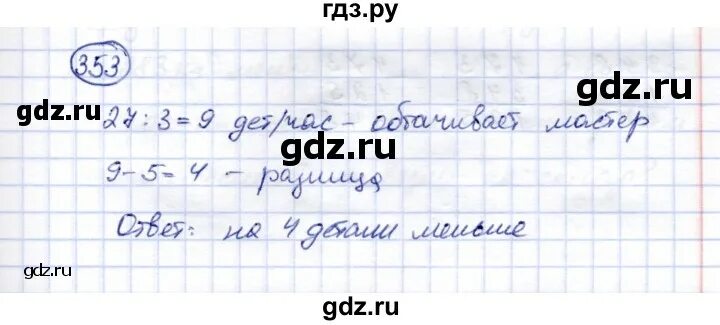 гдз.ру
353
gdz.ru
gdz.ru
27:3=9 дет/час – обтачивает мастер
gdz.ru
9-5=4 – разница
Ответ: на 4 детали меньше
gdz.ru
gdz.ru
gdz.ru